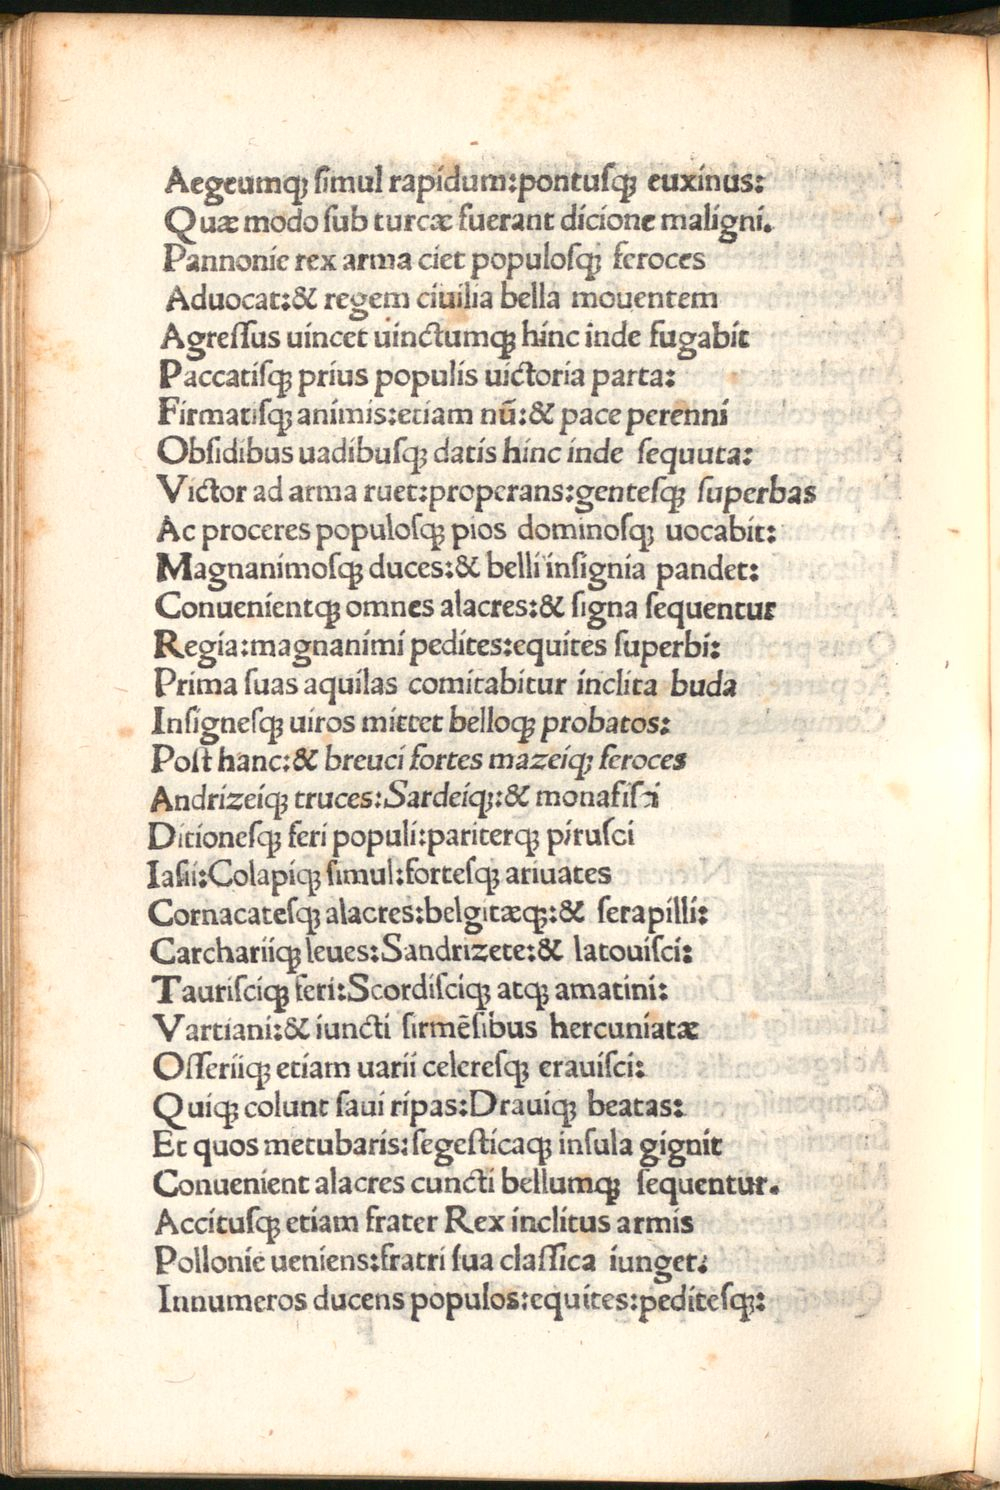 Aegeumqꝫ simul rapidum:pontusqꝫ euxinus:
Quæ modo sub turcæ fuerant dicione maligni.
Pannonie rex arma ciet populosqꝫ feroces
Aduocat:& regem ciuilia bella mouentem
Agressus uincet uinctumqꝫ hinc inde fugabit
Paccatisqꝫ prius populis uictoria parta:
Firmatisqꝫ animis:etiam nũ:& pace perenni
Obsidibus uadibusqꝫ datis hinc inde sequuta:
Victor ad arma ruet:properans:gentesqꝫ superbas
Ac proceres populosqꝫ pios dominosqꝫ uocabit:
Magnanimosqꝫ duces:& belli insignia pandet:
Conuenientqꝫ omnes alacres:& signa sequentur
Regia:magnanimi pedites:equites superbi:
Prima suas aquilas comitabitur inclita buda
Insignesqꝫ uiros mittet belloqꝫ probatos:
Post hanc:& breuci fortes mazeiqꝫ feroces
Andrizeiqꝫ truces:Sardeiqꝫ:&
Ditionesqꝫ feri populi:pariterqꝫ pirusci
Iasii:Colapiqꝫ simul:fortesqꝫ ariuates
Cornacatesqꝫ alacres:belgitæqꝫ:& serapilli:
Carchariiqꝫ leues:Sandrizete:& latouisci:
Taurisciqꝫ feri:Scordisciqꝫ atqꝫ amatini:
Vartiani:& iuncti sirmẽsibus hercuniatæ
Osseriiqꝫ etiam uarii celeresqꝫ erauisci:
Quiqꝫ colunt saui ripas:Drauiqꝫ beatas:
Et quos metubaris:segesticaqꝫ insula gignit
Conuenient alacres cuncti bellumqꝫ sequentur.
Accitusqꝫ etiam frater Rex inclitus armis
Pollonie ueniens:fratri sua classica iunget.
Innumeros ducens populos:equites:peditesqꝫ: